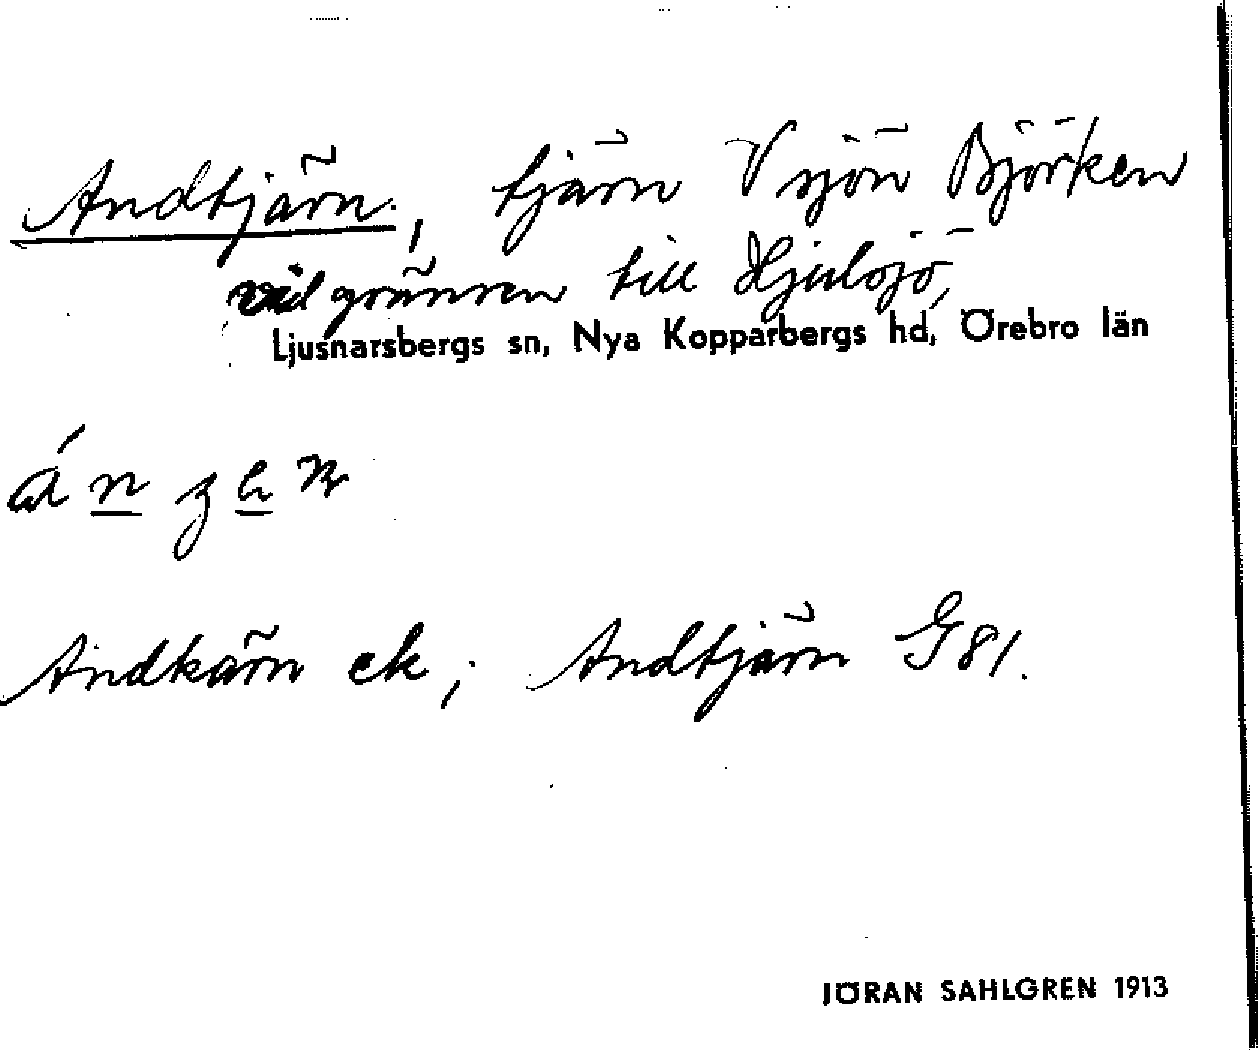 Andtjärn, tjärn V sjön Björken
vid gränsen till Hjulsjö,
Ljusnarsbergs sn, Nya Kopparbergs hd, Örebro län
Andkärn ek; Andtjärn G81.
JÖRAN SAHLGREN 1913